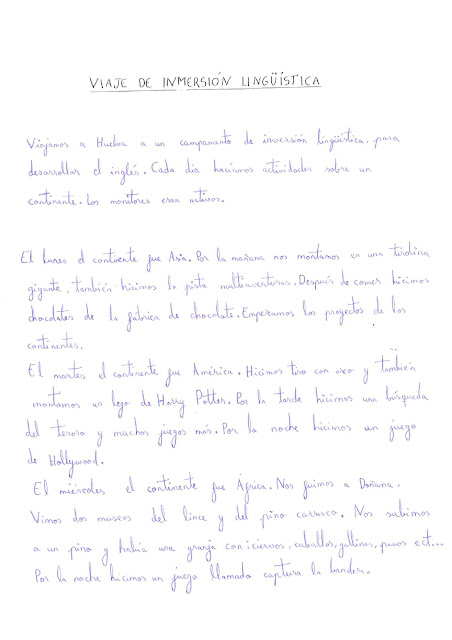 VIAJE DE INMERSIÓN LINGÜÍSTICA
Viajamos a Huelva a un campamento de inversión lingüística, para
desarrollar el inglés. Cada día hacíamos actividades sobre un
continente. Los monitores eran nativos.
El lunes el contiente fue Asia. Por la mañana nos montamos en una tirolina
gigante, también hicimos la pista multiaventuras. Después de comer hicimos
chocolates de la fábrica de chocolate. Empezamos los proyectos de los
continentes.
El martes el continente fue América. Hicimos tiro con arco y también
montamos un lego de Harry Potter. Por la tarde hicimos una búsqueda
del tesoro y muchos juegos más. Por la noche hicimos un juego
de Hollywood.
El miércoles el continente fue África. Nos fuimos a Doñana.
Vimos dos museos del lince y del pino carrasco. Nos subimos
a un pino y había una granja con:ciervos, caballos, gallinas, pavos ect...
Por la noche hicimos un juego llamado captura la bandera.